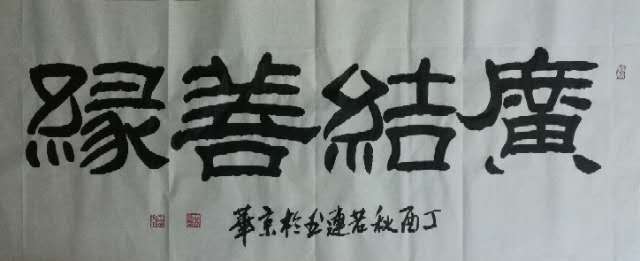 廣結善緣
丁酉秋若蓮書於京華